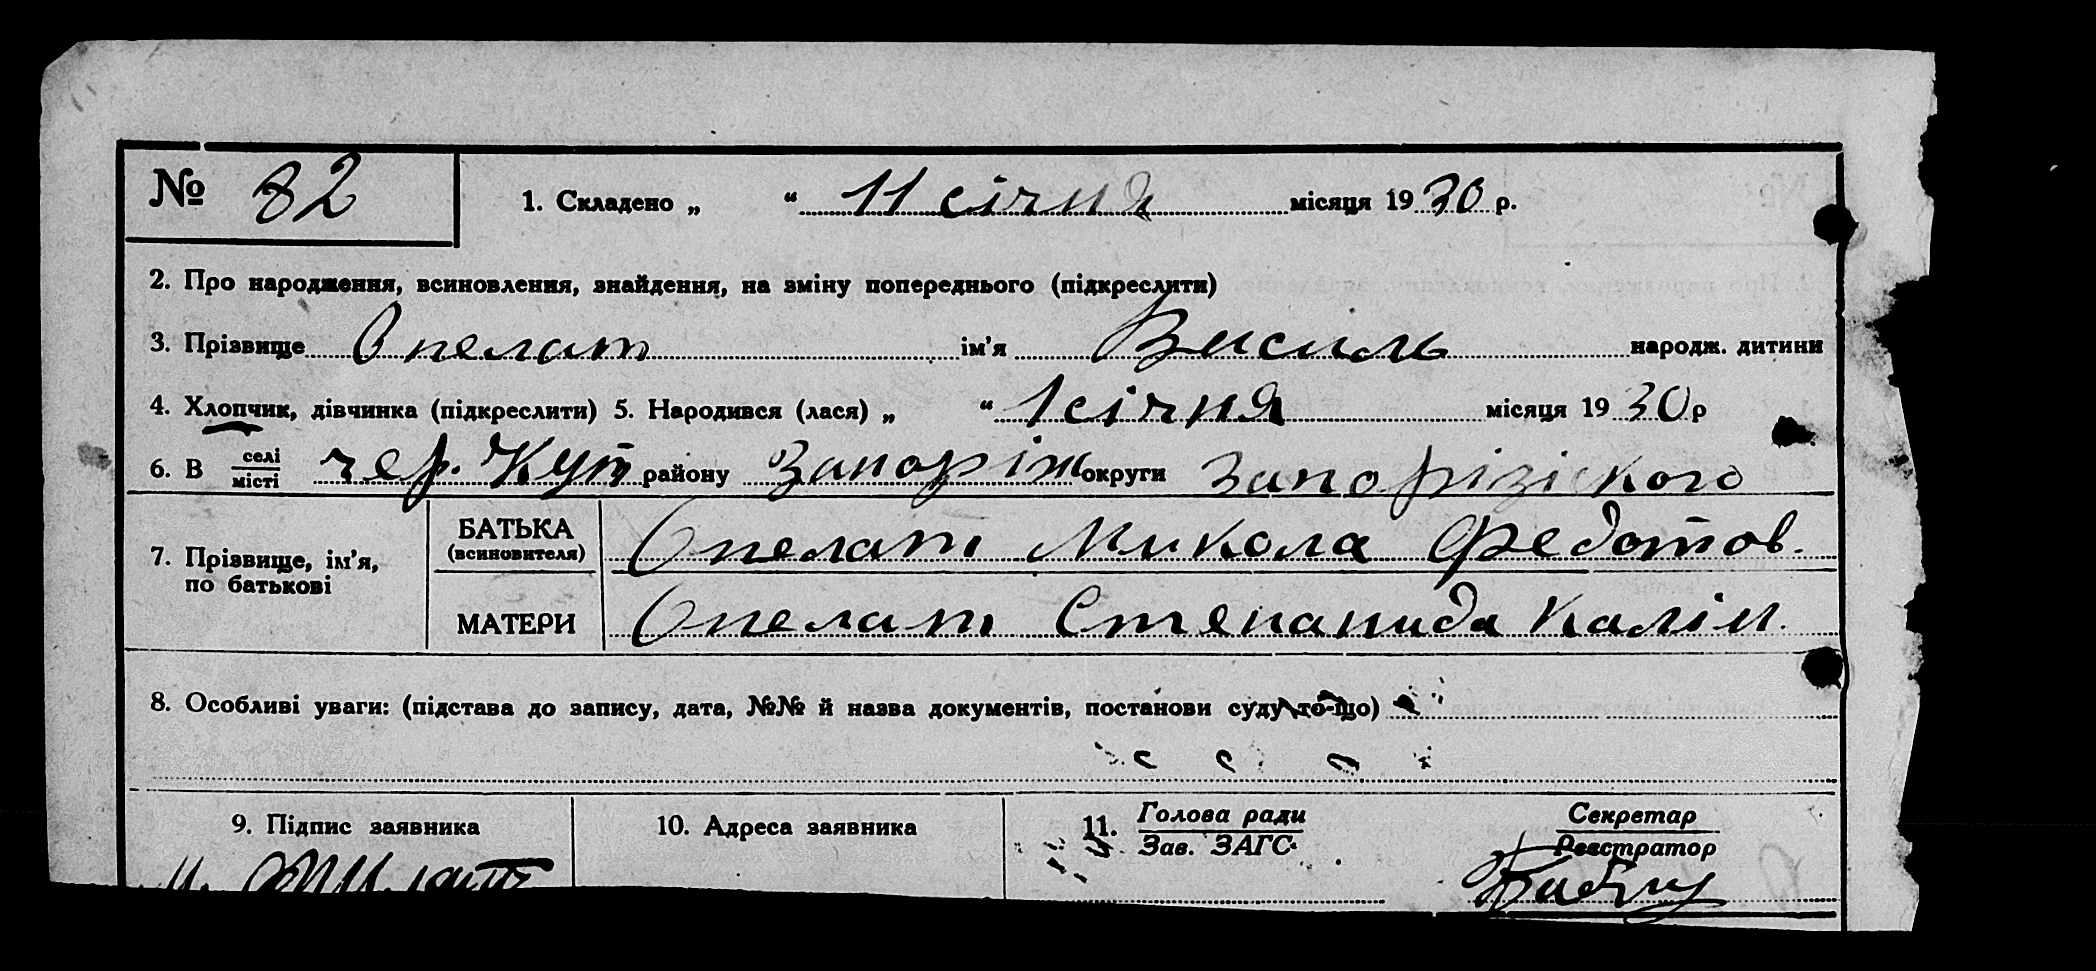 № 82 1. Складено „ “ 11 січня місяця 1930 р.
2. Про народження, всиновлення, знайдення, на зміну попереднього (підкреслити)
3. Прізвище Опелат ім’я Василь народж. дитини
4. Хлопчик, дівчинка (підкреслити) 5. Народився (лася) „ “ 1 січня місяця 1930 р
6. В селі/місті чер. Кут району Запоріж округи Запорізіского
7. Прізвище, ім’я, по батькові
БАТЬКА (всиновителя) Опелат Микола Федотов.
МАТЕРИ Опелат Степанида Калін.
8. Особливі уваги: (підстава до запису, дата, №№ й назва документів, постанови суду то-що)
9. Підпис заявника 10. Адреса заявника 11. Голова ради Секретар
Зав. ЗАГС Реєстратор